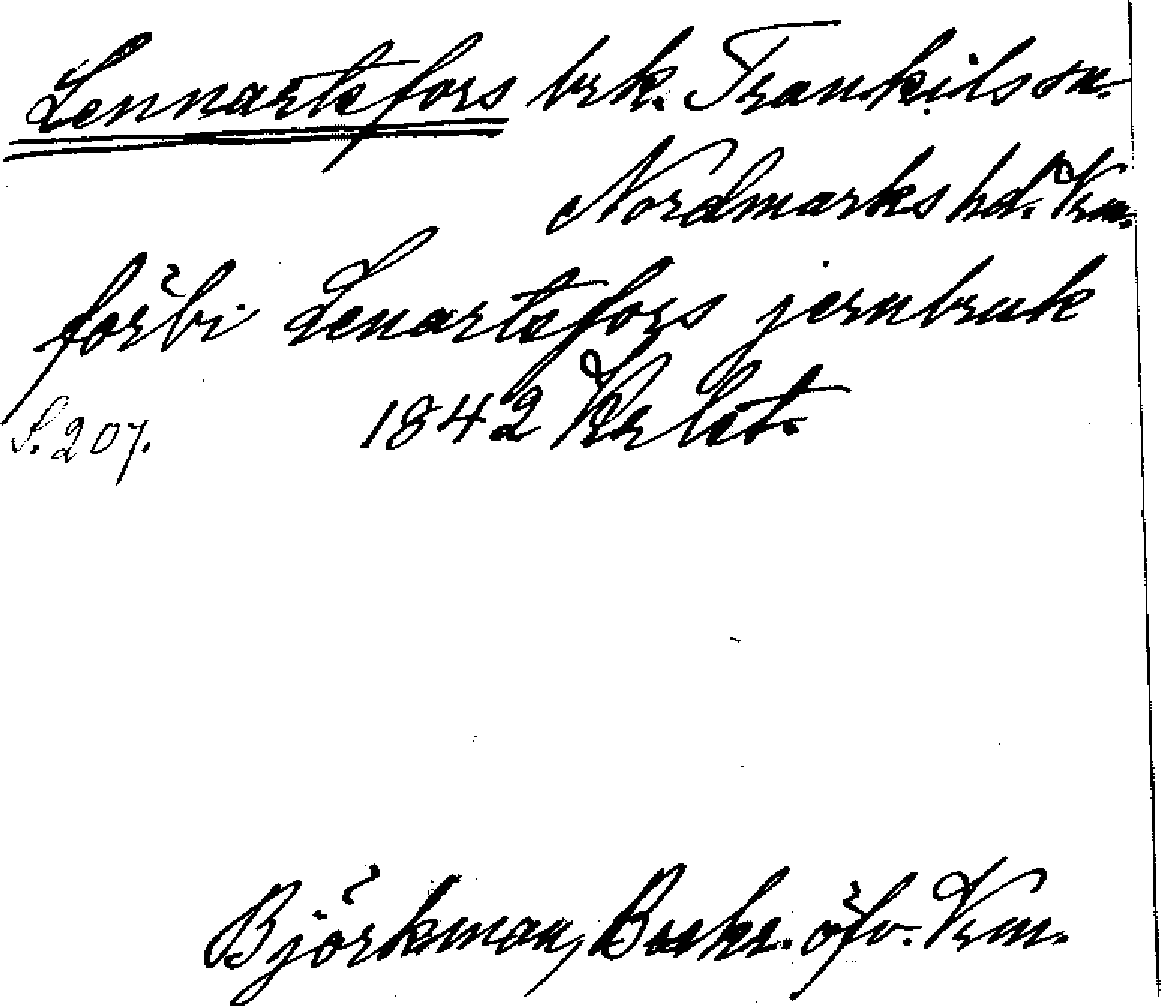 Lennartsfors brk. Trankils sn.
Nordmarks hd. Vrm.
förbi Lenartsfors jernbruk
S. 207. 1842
Björkman, Beskr. öfv. Vrm.